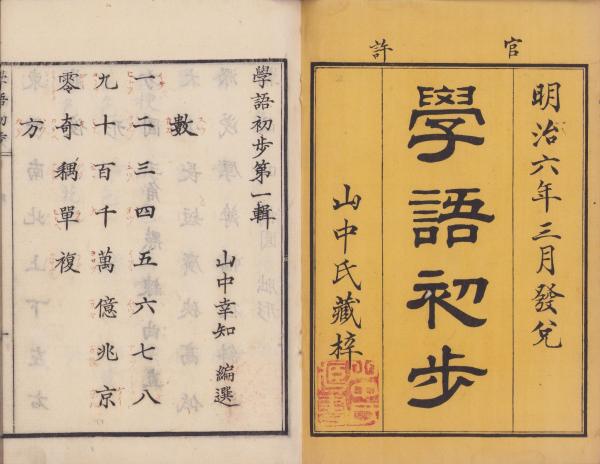 官許
明治六年三月發兌
學語初步
山中氏藏梓
學語初步第一輯
山中幸知 編選
數
一二三四五六七八
九十百千萬億兆京
零奇耦單複
方